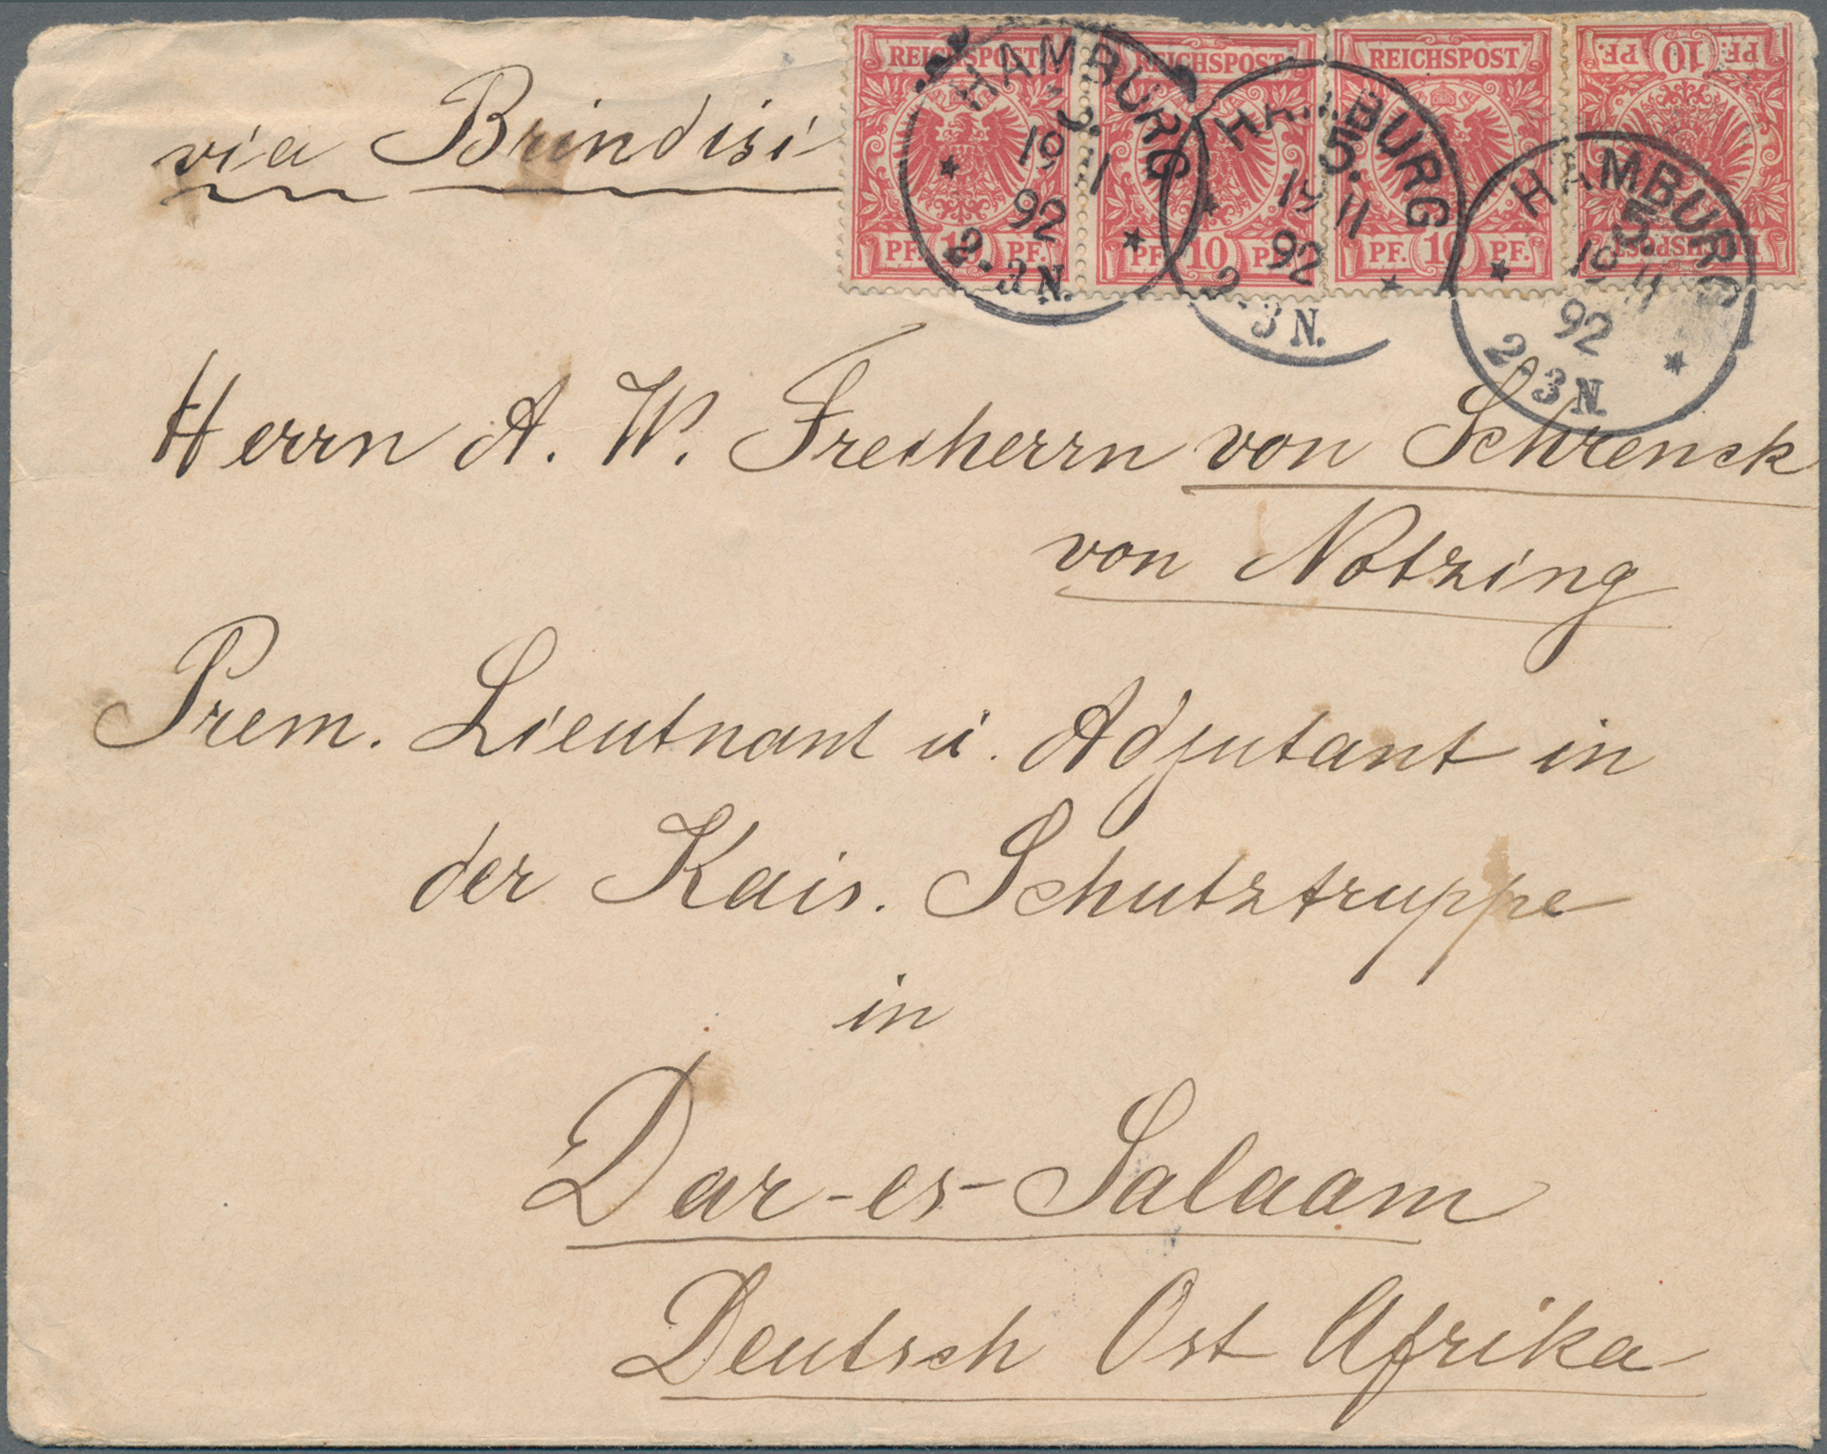 via Brindisi
REICHSPOST REICHSPOST REICHSPOST REICHSPOST
PF. 10 PF. PF. 10 PF. PF. 10 PF. PF. 10 PF.
HAMBURG
5.
19 11
92
2-3N.
HAMBURG
5.
19 11
92
2-3N.
HAMBURG
5.
19 11
92
2-3N.
Herrn A. W. Freiherrn von Schrenck
von Notzing
Prem. Lieutnant u. Adjutant in
der Kais. Schutztruppe
in
Dar-es-Salaam
Deutsch Ost Afrika